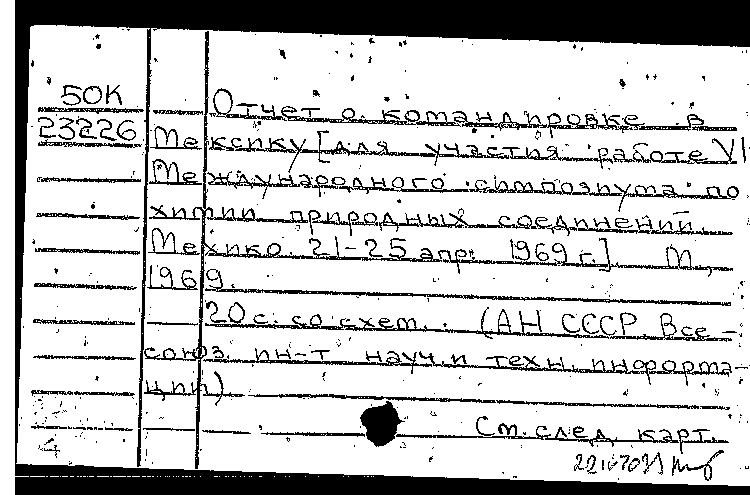 50К
23226
Отчет о командировке в
Мексику [для участия работе VI
Международного симпозиума по
химии природных соединений.
Мехико. 21-25 апр. 1969 г.] М.,
1969.
20 с. со схем. (АН СССР Все-
союз. ин-т науч. и техн. информа-
ции)
См. след. карт.
4